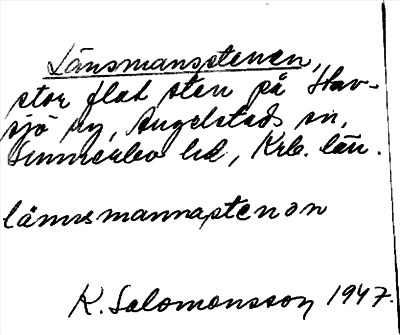 Länsmanstenen,
stor flat sten på Hav-
sjö by, Angelstads sn,
Sunnerbo hd, Krb. län.
länsmannastenon
K. Salomonsson 1947.